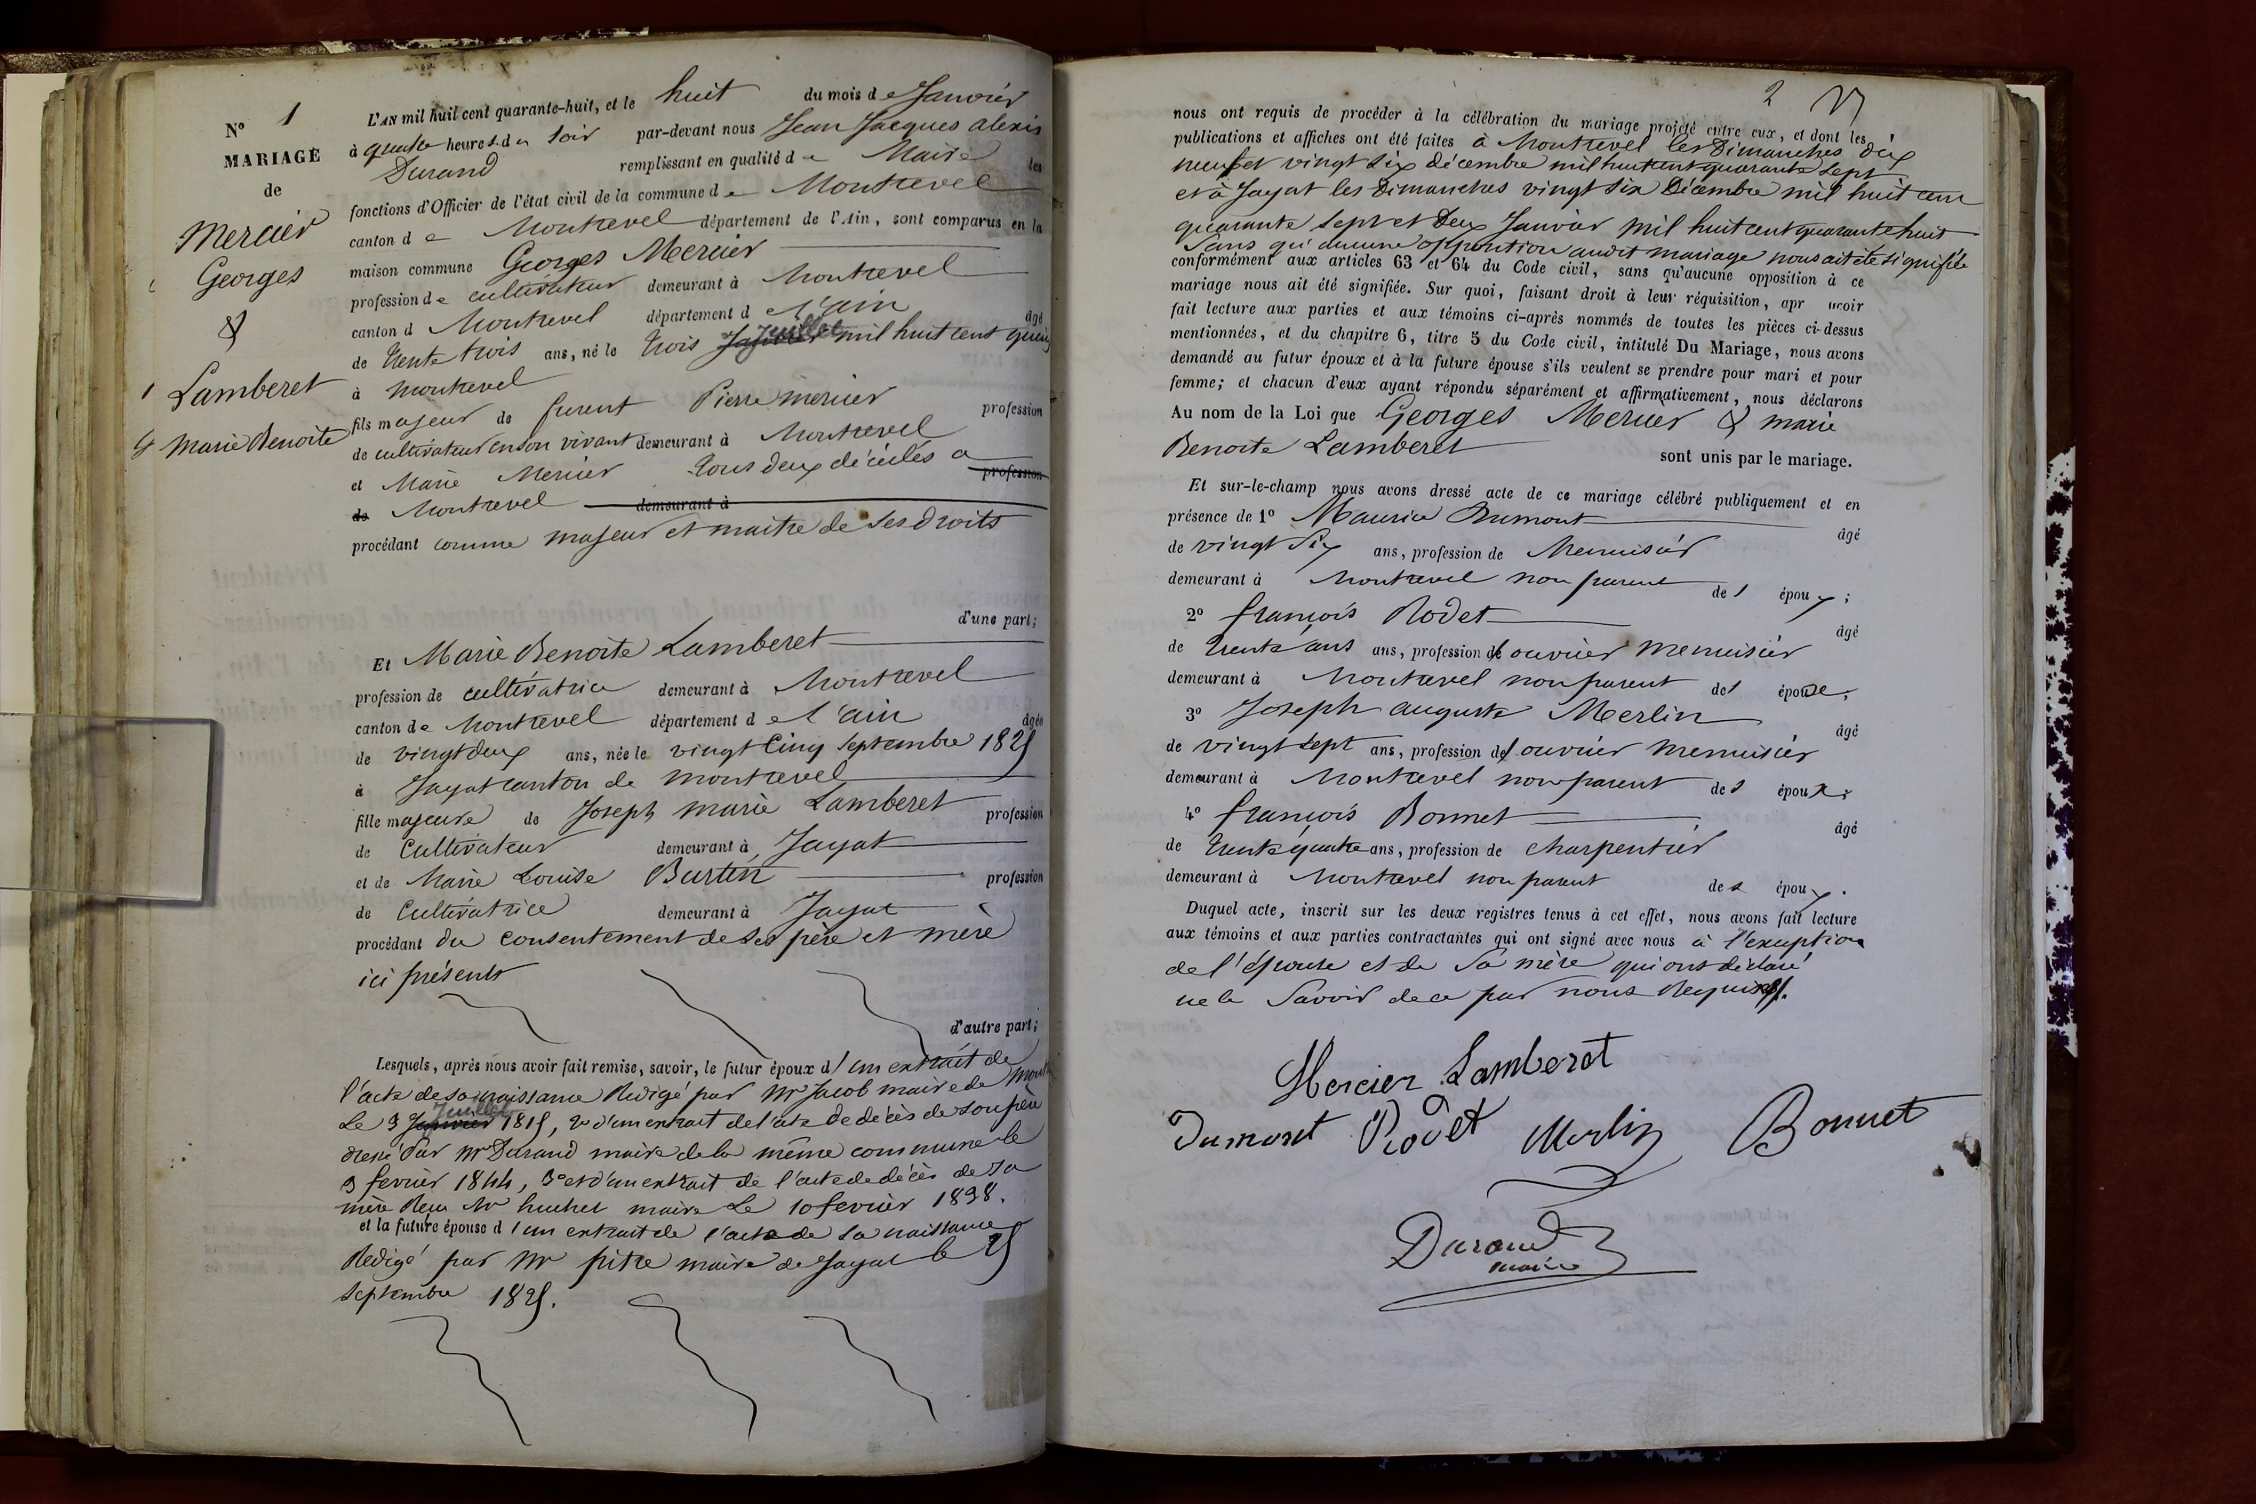 N° 1
MARIAGE
de
Mercier
Georges
&
Lamberet
Marie Benoite
L'AN mil huit cent quarante-huit, et le huit du mois de Janvier
à quatre heures du soir par-devant nous Jean Jacques alexis
Durand remplissant en qualité de Maire les
fonctions d'Officier de l'état civil de la commune de Montrevel
canton de Montrevel département de l'Ain, sont comparus en la
maison commune Georges Mercier
profession de cultivateur demeurant à Montrevel
canton d Montrevel département de l'ain âgé
de trente trois ans, né le trois Janvier Juillet mil huit cent
à montrevel
fils majeur de furent Pierre mercier profession
de cultivateur en son vivant demeurant à Montrevel
et Marie Mercier tous deux décédés a profession
de Montrevel demeurant à
procédant comme majeur et maitre de ses droits
d'une part;
Et Marie Benoite Lamberet
profession de cultivatrice demeurant à Montrevel
canton de Montrevel département de l'ain âgée
de vingt deux ans, née le vingt Cinq Septembre 1825
à Jayat canton de montrevel
fille majeure de Joseph marie Lamberet profession
de Cultivateur demeurant à Jayat
et de Marie Louise Burtin profession
de Cultivatrice demeurant à Jayat
procédant du consentement de ses père et mère
ici présents
d'autre part;
Lesquels, après nous avoir fait remise, savoir, le futur époux d'un extrait de
l'acte de sa naissance Redigé par Mr Jacob maire de
Le 3 Janvier Juillet 1815, 2° d'un extrait de l'acte de décès de son père
dressé Par Mr Durand maire de la même commune le
3 fevrier 1844, 3° et d'un extrait de l'acte de décès de sa
mère Reçu Mr huchet maire Le 10 fevrier 1838.
et la future épouse d'un extrait de l'acte de sa naissance
Redigé par Mr pitre maire de Jayat le 25
Septembre 1825.
2
nous ont requis de procéder à la célébration du mariage projeté entre eux, et dont les
publications et affiches ont été faites à Montrevel les Dimanches dix
neuf et vingt six décembre mil huit cent quarante sept
et à Jayat les Dimanches vingt six Décembre mil huit cent
quarante sept et Deux Janvier mil huit cent quarante huit
Sans qu'aucune opposition audit mariage nous ait été signifiée
conformément aux articles 63 et 64 du Code civil, sans qu'aucune opposition à ce
mariage nous ait été signifiée. Sur quoi, faisant droit à leur réquisition, apr avoir
fait lecture aux parties et aux témoins ci-après nommés de toutes les pièces ci-dessus
mentionnées, et du chapitre 6, titre 5 du Code civil, intitulé Du Mariage, nous avons
demandé au futur époux et à la future épouse s'ils veulent se prendre pour mari et pour
femme; et chacun d'eux ayant répondu séparément et affirmativement, nous déclarons
Au nom de la Loi que Georges Mercier & marie
Benoite Lamberet sont unis par le mariage.
Et sur-le-champ nous avons dressé acte de ce mariage célébré publiquement et en
présence de 1° Maurice Dumont âgé
de vingt Six ans, profession de Menuisier
demeurant à Montrevel non parent des époux;
2° françois Rodet âgé
de trente ans ans, profession d'ouvrier menuisier
demeurant à Montrevel non parent des épou
3° Joseph auguste Merlin âgé
de vingt sept ans, profession d'ouvrier menuisier
demeurant à Montrevel non parent des époux;
4° françois Bonnet âgé
de trente quatre ans, profession de charpentier
demeurant à Montrevel non parent des époux.
Duquel acte, inscrit sur les deux registres tenus à cet effet, nous avons fait lecture
aux témoins et aux parties contractantes qui ont signé avec nous à l'exception
de l'épouse et de Sa mère qui ont déclaré
ne le Savoir de ce par nous Requises.
Mercier Lamberet
Dumont Rodet Merlin Bonnet
Durand
maire